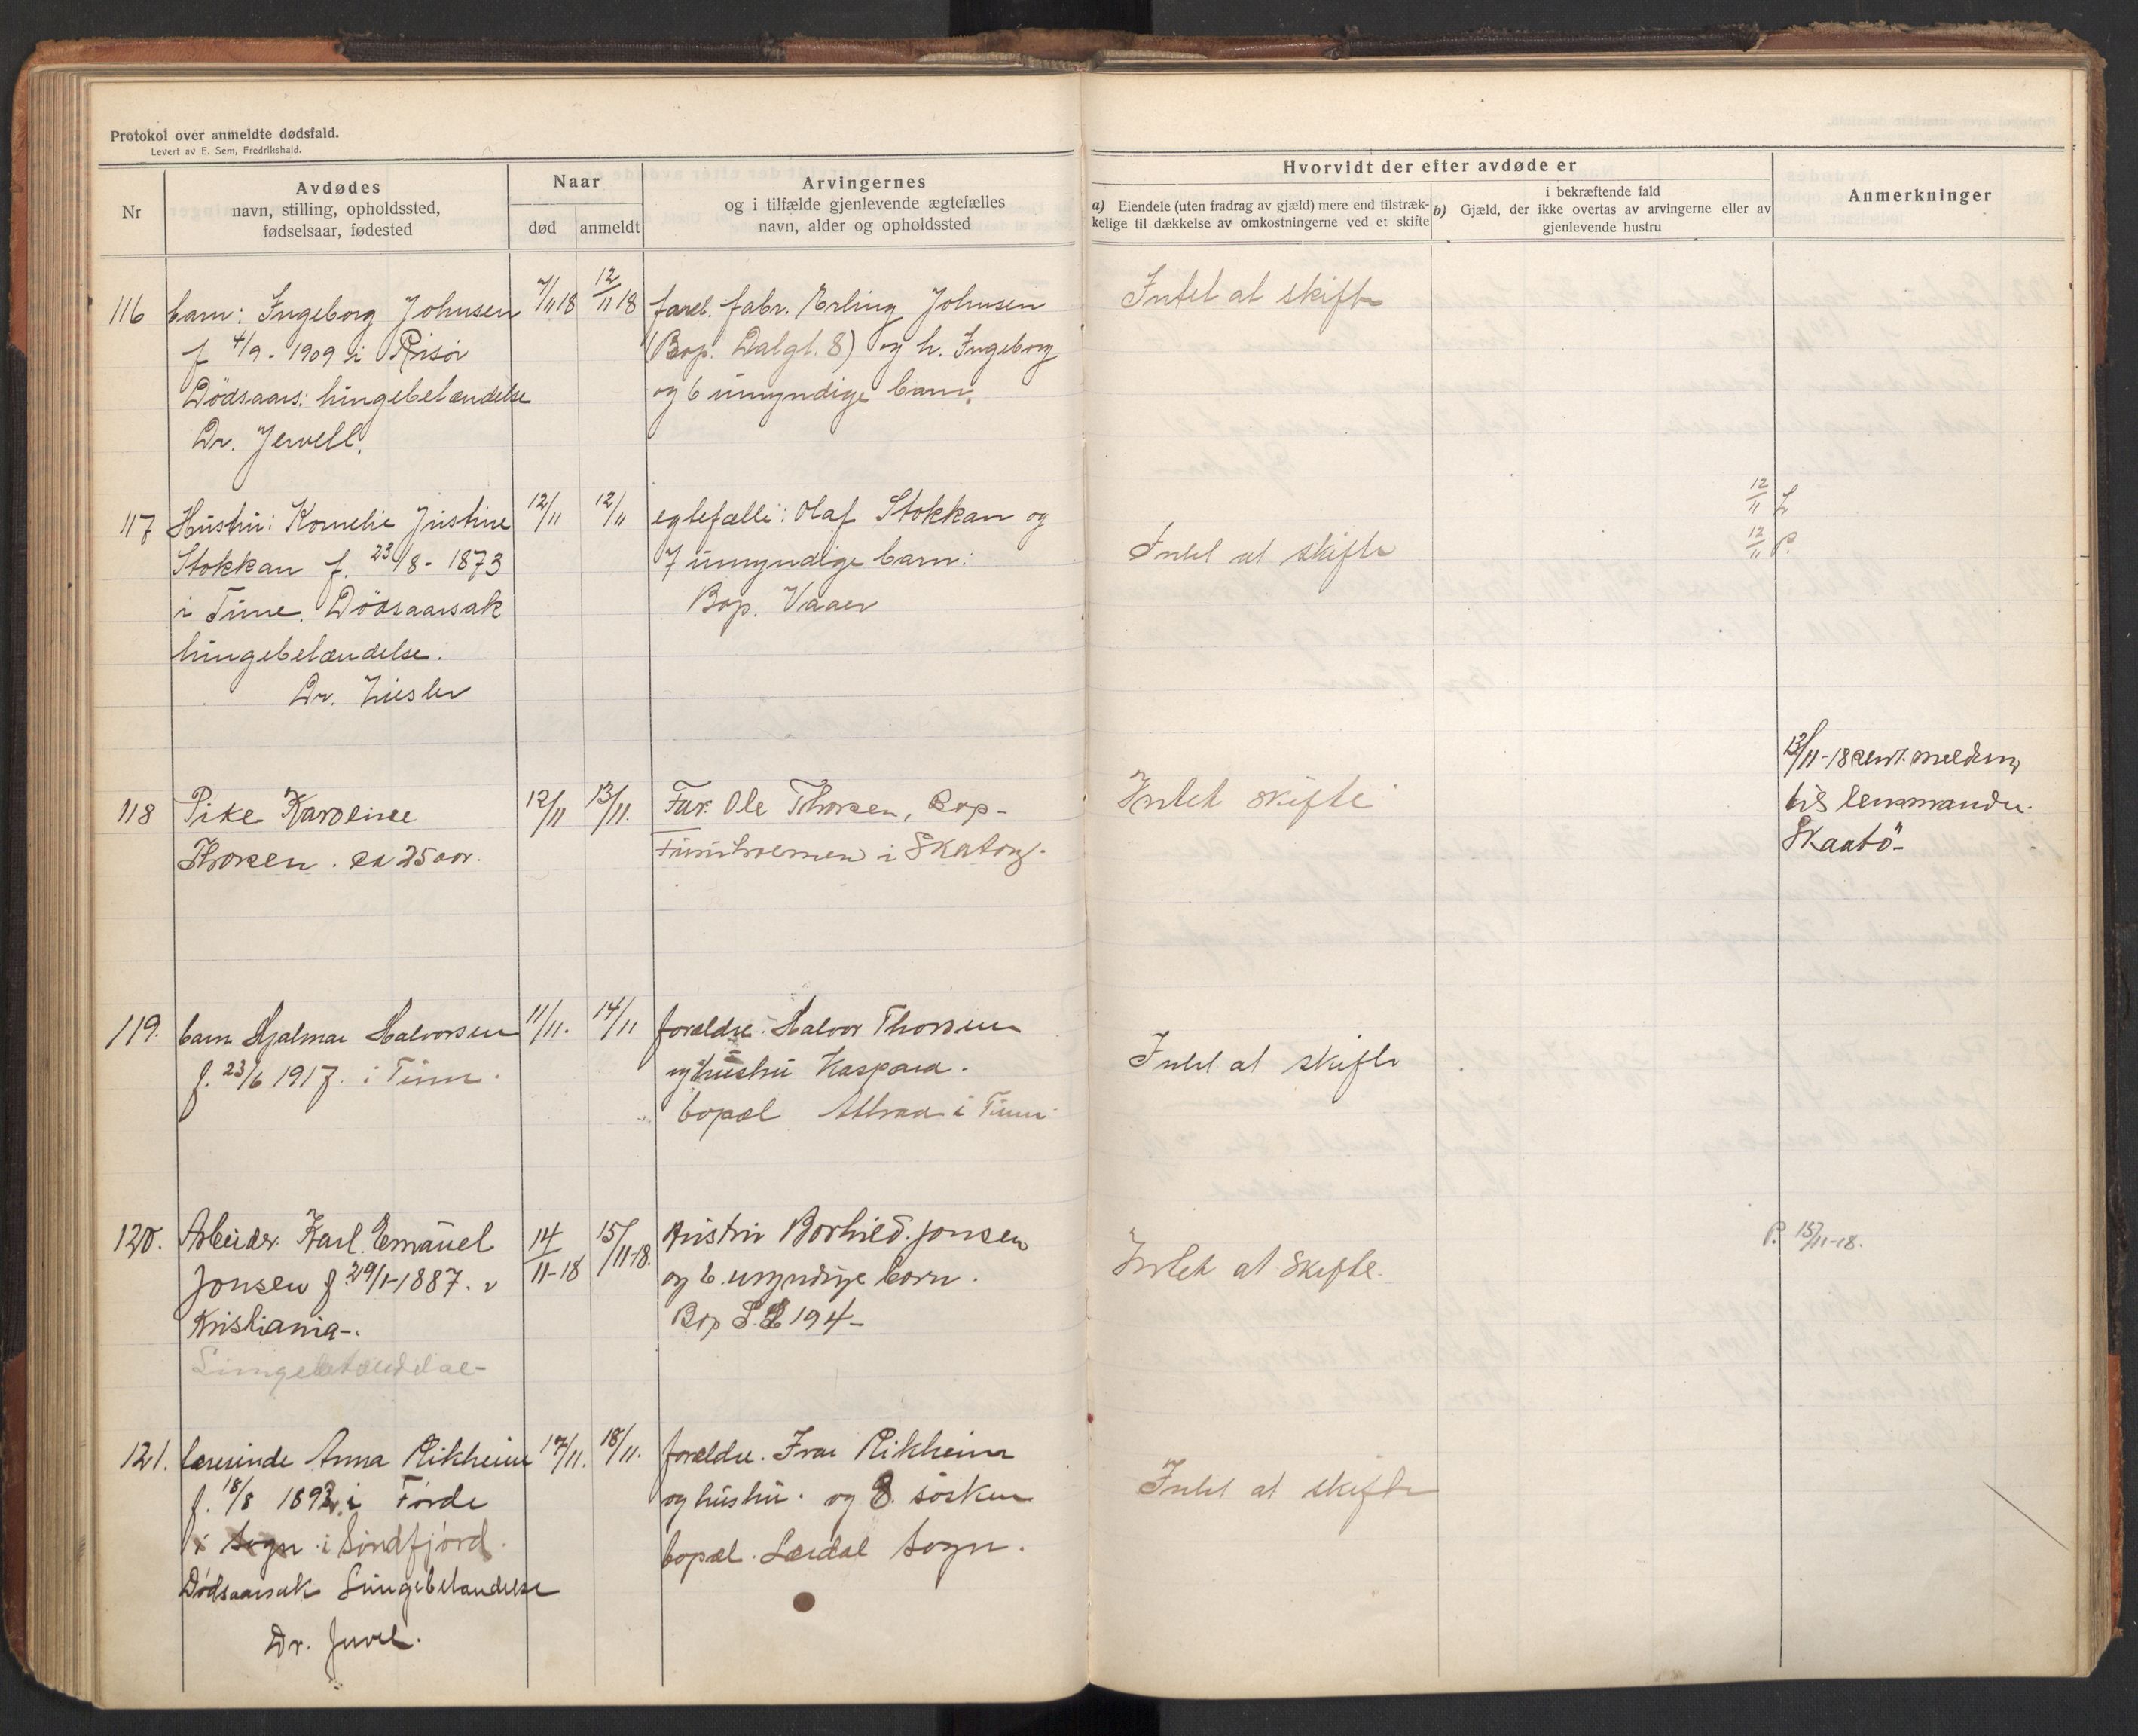 Protokol over anmeldte dødsfald.
Levert av E. Sem, Fredrikshald.
Nr
Avdødes
navn, stilling, opholdssted,
fødselsaar, fødested
Naar
død
anmeldt
Arvingernes
og i tilfælde gjenlevende ægtefælles
navn, alder og opholdssted
Hvorvidt der efter avdøde er
a) Eiendele (uten fradrag av gjæld) mere end tilstræk-
kelige til dækkelse av omkostningerne ved et skifte
i bekræftende fald
b) Gjæld, der ikke overtas av arvingerne eller av
gjenlevende hustru
Anmerkninger
116
barn: Ingeborg Johnsen
f 4/9 - 1909 i Risör
Dödsaars: lungebetændelse
Dr. Jervell.
7/11 18
12/11 18
fabr. Erling Johnsen
(Bop. Dalgt. 8) og h. Ingeborg
og 6 umyndige barn.
Intet at skifte
117
Hustru: Kornelie Justine
Stokkan f. 23/8 - 1873
i Tinne. Dödsaarsak
lungebetændelse.
Dr. Ziesler
12/11
12/11
egtefælle: Olaf Stokkan og
7 umyndige barn:
Bop. Vaaer
Intet at skifte
12/11 L
12/11 P.
118
Pike Karoline
Thorsen. ca 25 aar.
12/11
13/11.
Far: Ole Thorsen, Bop-
i Skatöy.
Intet skifte
13/11-18 sent melding
til lensmanden
Skaatö-
119.
barn Hjalmar Halvorsen
f. 23/6 1917. i Tinn.
11/11.
14/11
forældre: Halvor Thorsen
og hustru Kaspara.
bopæl Attraa i Tinn
Intet at skifte
120.
Arbeider Karl Emanuel
Jonsen f. 29/1-1887. i
Kristiania-.
Lungebetændelse-
14/11-18
15/11-18.
Hustru Borhild Jonsen
og 6. umyndige barn.
Bop S.E 194-
Intet at Skifte.
P. 15/11-18.
121.
lærerinde Anna Rikheim
f. 18/8 1892 i Förde
i Sogn i Söndfjord.
Dödsaarsak Lungebetændelse
Dr. Juvel.
17/11.
18/11.
forældre. Ivar Rikheim
og hustru. og 8. sösken
bopæl. Lærdal Sogn.
Intet at skifte